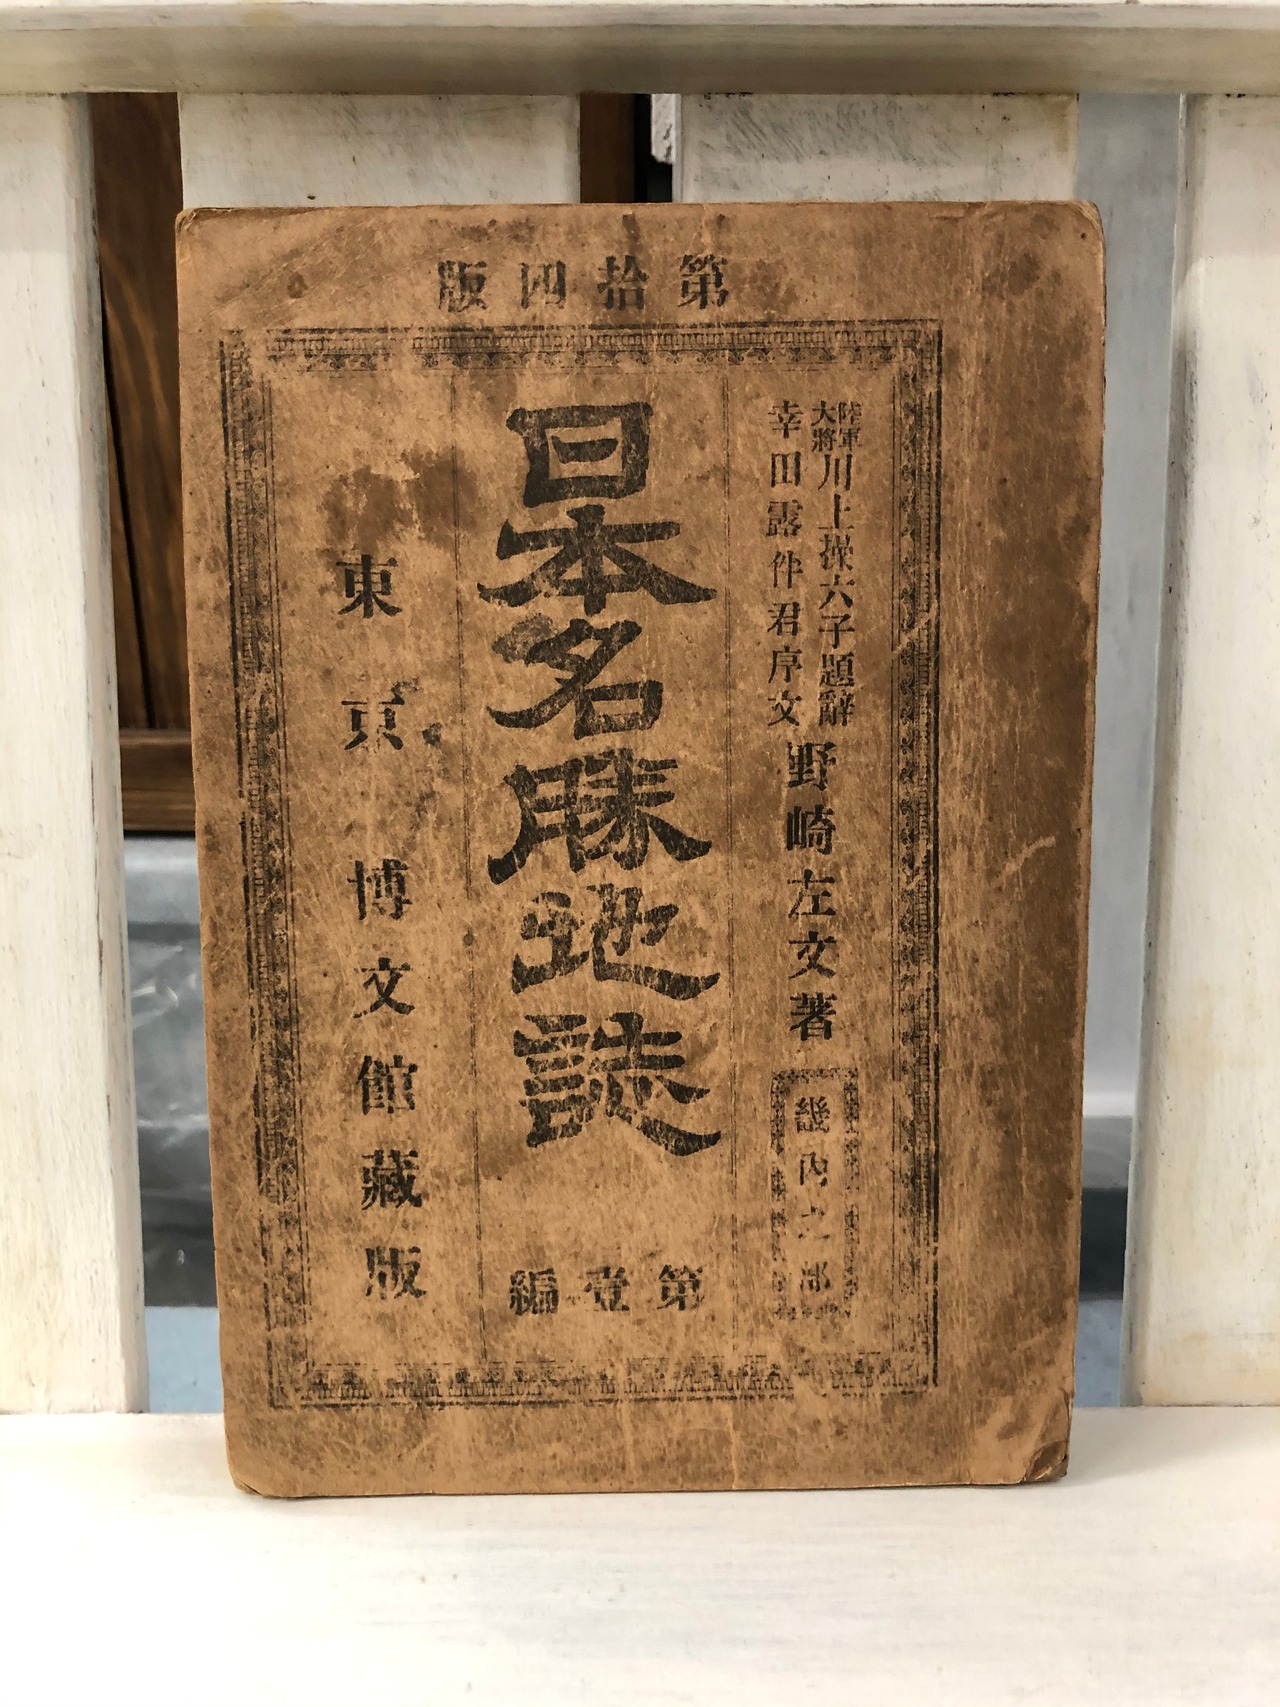 第拾四版
陸軍大將川上操六子題辭
幸田露伴君序文
野崎左文著
畿內之部
日本名勝地誌
第壹編
東京博文館藏版